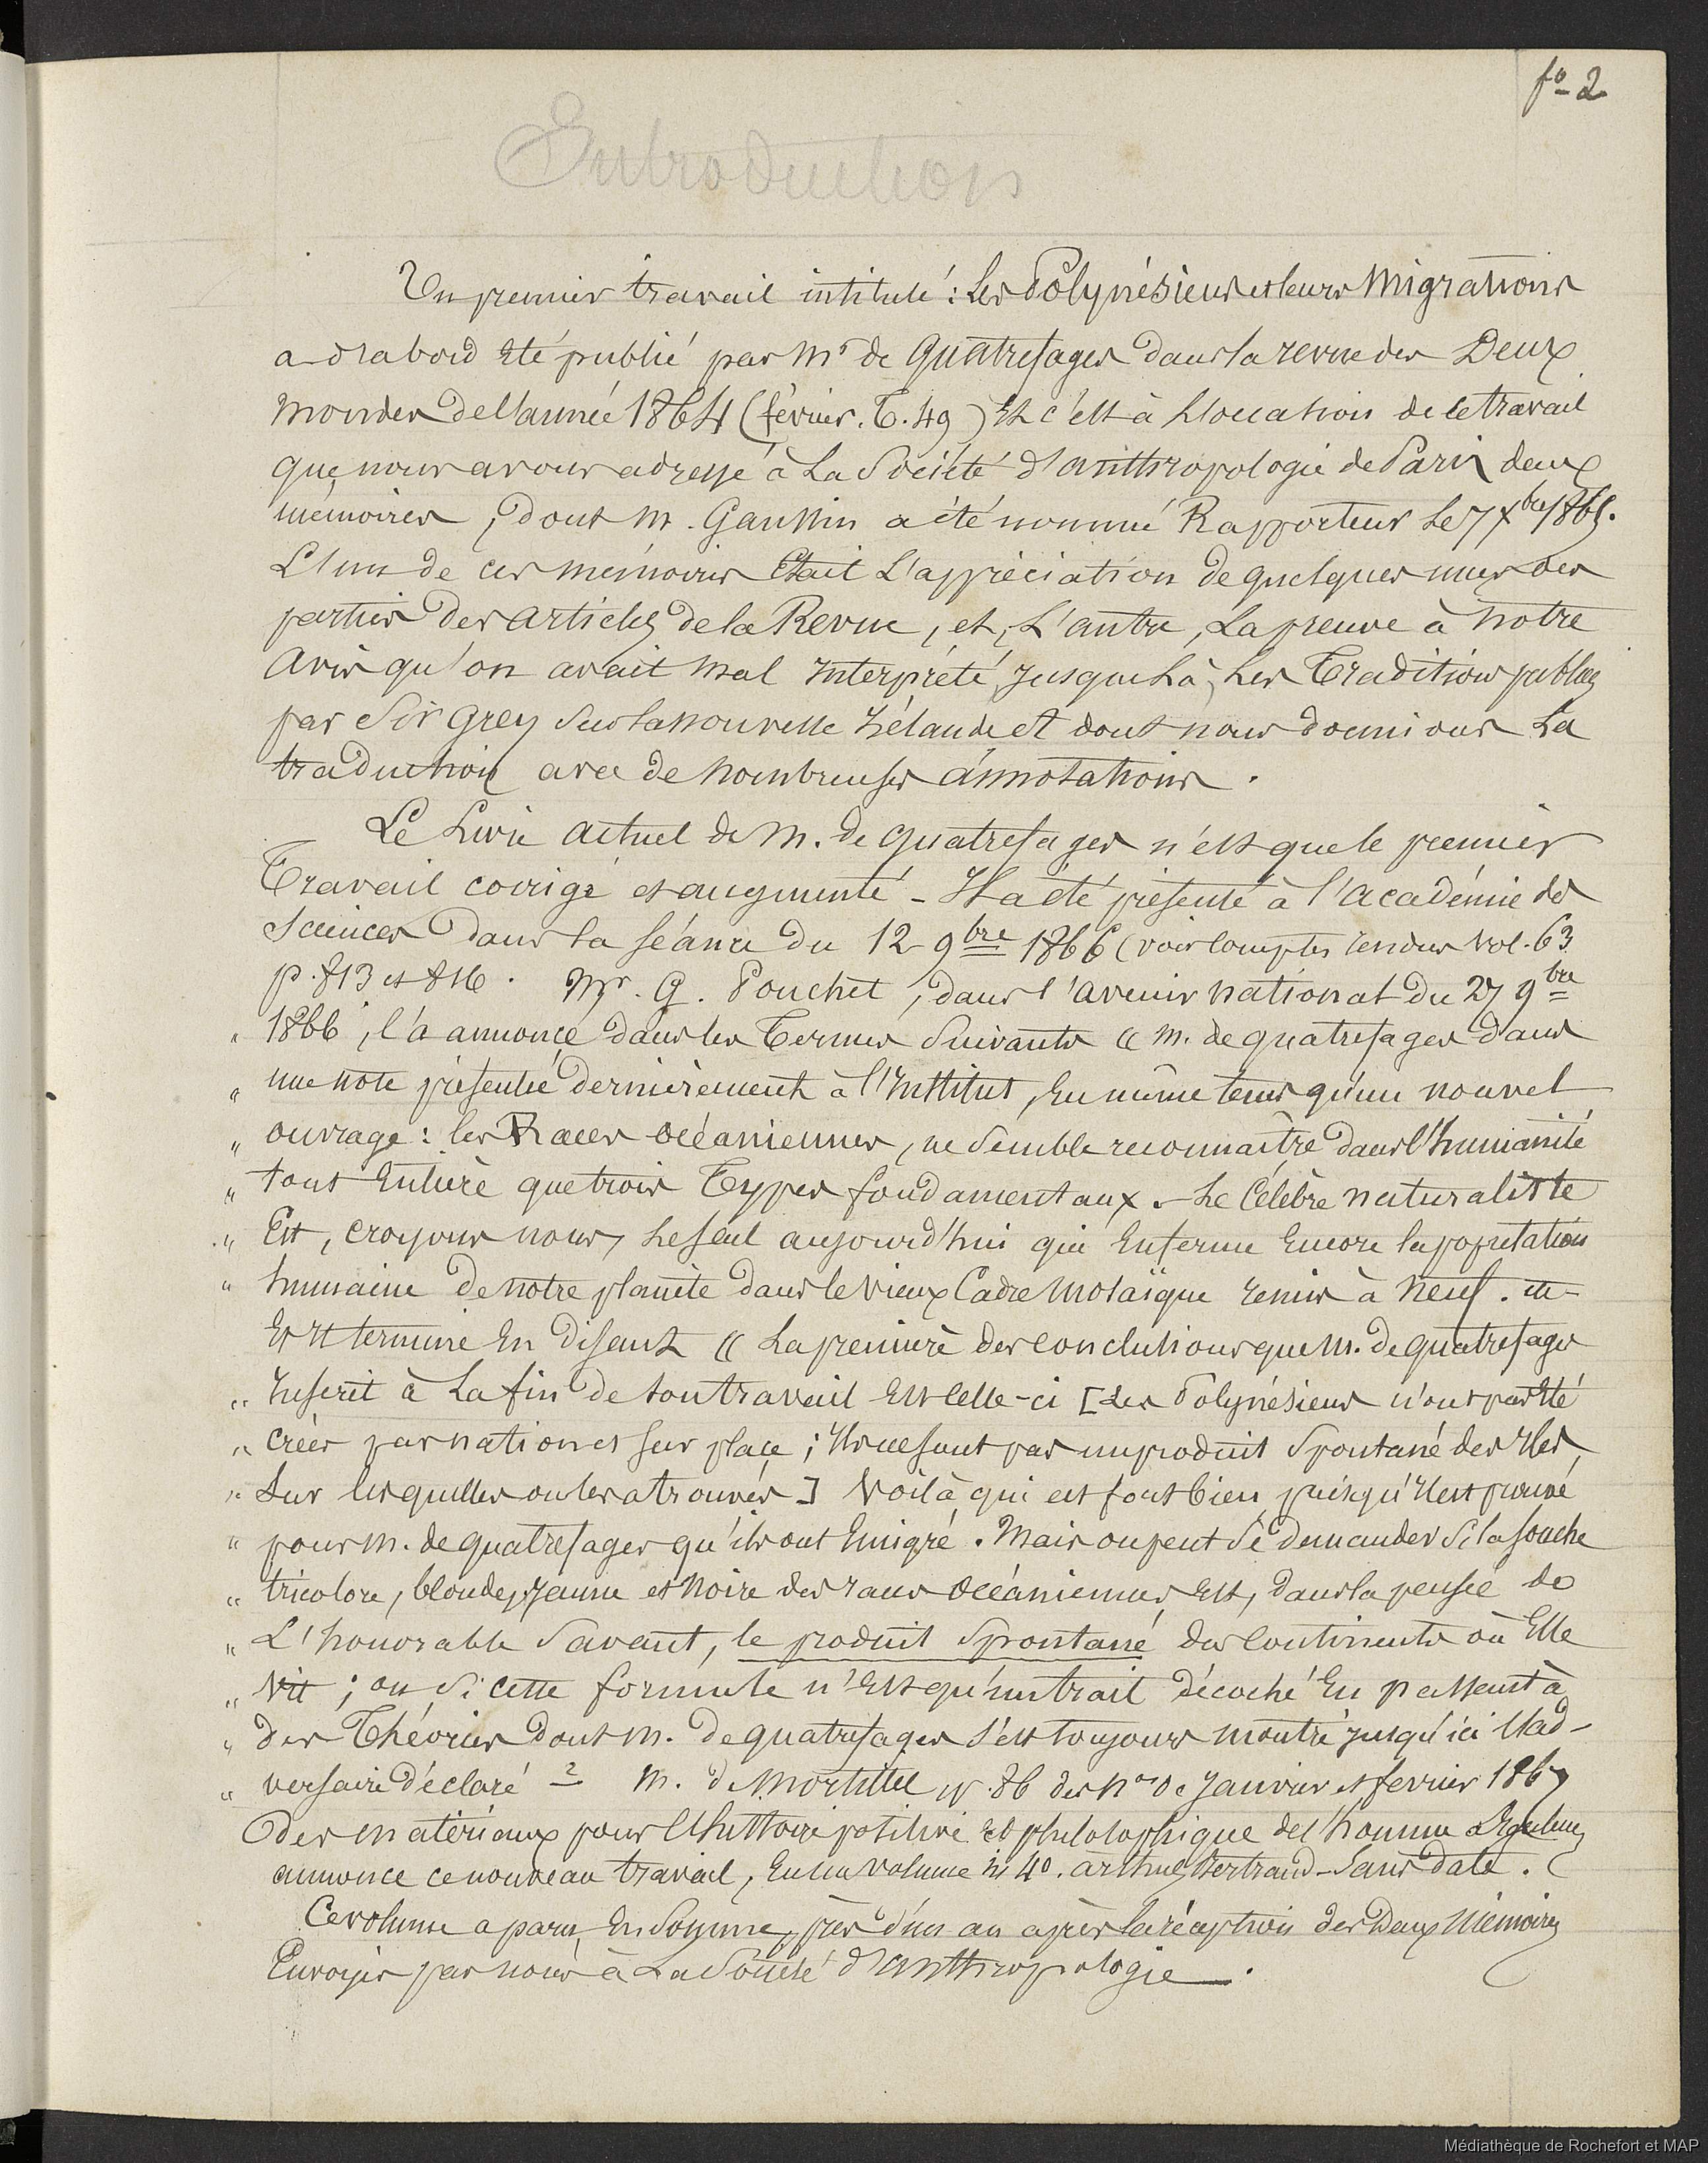 fo 2
Introduction
Un premier travail intitulé : Les Polynésiens et leurs Migrations
a d'abord été publié par Mr de Quatrefages dans la revue des Deux
Mondes de l'année 1864 (février. T. 49) Et c'est à l'occasion de ce travail
que nous avons adressé à La Société d'anthropologie de Paris deux
mémoires, dont M. Gaussin a été nommé Rapporteur Le 7 Xbre 1865.
L'un de ces mémoires Etait L'appréciation de quelques unes des
parties des articles de la Revue, et, L'autre, La preuve à notre
avis qu'on avait mal interprété, jusque Là, Les Traditions publiées
par Sir Grey Sur la nouvelle Zélande et dont nous donnions La
traduction avec de nombreuses annotations.
Le Livre actuel de M. de quatrefages n'est que le premier
Travail corrigé et augmenté - Il a été présenté à l'académie des
Sciences Dans la séance du 12 9bre 1866 (voir comptes rendus vol. 63
p. 813 et 816. Mr. G. Pouchet, dans l'avenir national du 27 9bre
" 1866, l'a annoncé dans les Termes Suivants (( M. de quatrefages dans
" une note présentée dernièrement à l'Institut, En même tems qu'un nouvel
" ouvrage : les Races océaniennes, ne Semble reconnaître dans l'humanité
" tout Entière que trois Types fondamentaux. - Le Célèbre naturaliste
" Est, croyons nous, Le seul aujourd'hui qui Enferme Encore la population
" humaine de notre planète dans le vieux Cadre Mosaïque remis à neuf. -
Et Il termine En disant (( La première des conclusions que M. de quatrefages
" Inscrit à La fin de son travail Est Celle-ci [Les Polynésiens n'ont pas Eté
" créés par nation et sur place ; Ils ne sont pas un produit Spontané des Iles,
" Sur lesquelles on les a trouvés] Voilà qui est fort bien puisqu'Il est prouvé
" pour M. de quatrefages qu'ils ont Emigré. Mais on peut Se demander Si la souche
" tricolore, blonde, jaune et Noire des races océaniennes, Est, dans la pensée de
" L'honorable Savant, le produit Spontané des Continents où Elle
" Vit ; ou Si cette formule n'Est qu'un trait décoché En passant à
" des Théories dont M. De quatrefages s'est toujours montré jusqu'ici l'ad-
" versaire déclaré ? M. de Mortillet p. 86 des nos de Janvier et février 1867
Des matériaux pour l'histoire positive et philosophique de l'homme
annonce ce nouveau travail, En un volume in 4o. arthus Bertrand - Sans date.
Ce volume a paru, En Somme, près d'un an après la réception des Deux Mémoires
Envoyés par nous à La Société d'anthropologie.
Médiathèque de Rochefort et MAP